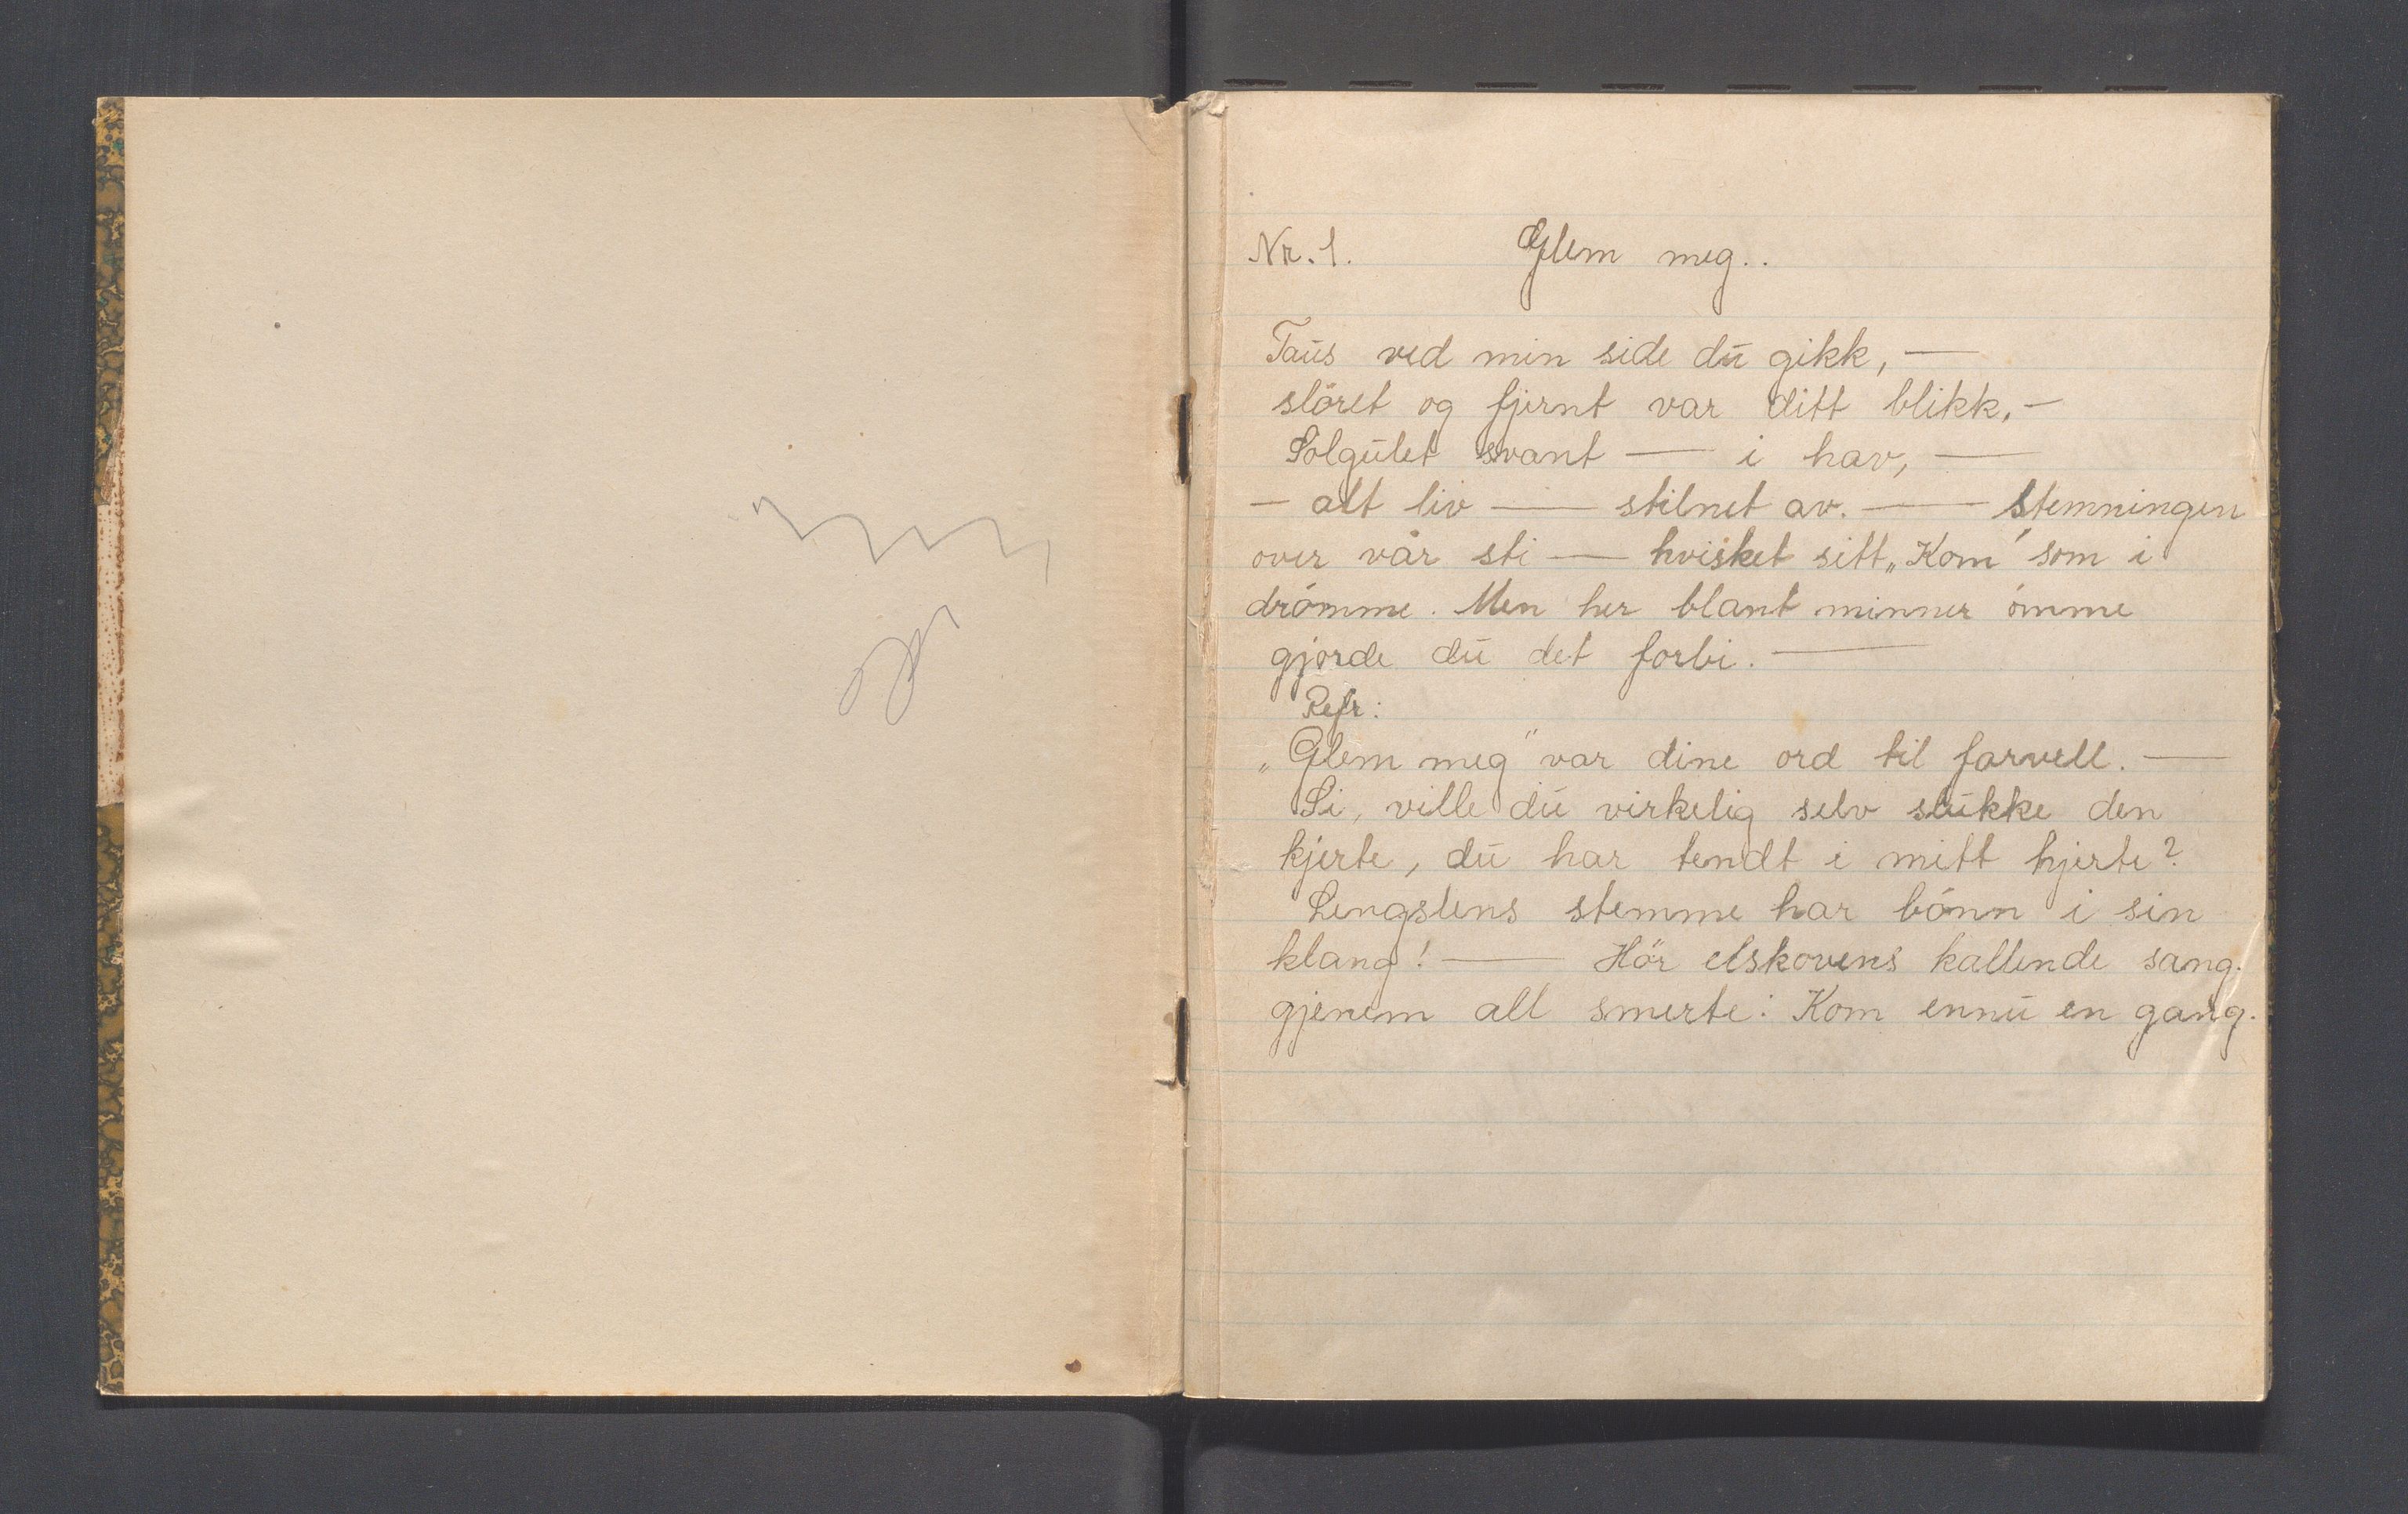 Nr. 1. Glem meg..
Taus ved min side du gikk, —
slöret og fjernt var ditt blikk, –
Solgulet svant — i hav, —
– alt liv — stilnet av. — Stemningen
over vår sti — hvisket sitt „Kom" som i
drömme. Men her blant minner ömme
gjorde du det forbi. —
Refr:
„Glem meg" var dine ord til farvell. —
Si, ville du virkelig selv slukke den
kjerte, du har tendt i mitt hjerte?
Lengslens stemme har bönn i sin
klang! — Hör elskovens kallende sang.
gjenem all smerte: Kom ennu en gang.